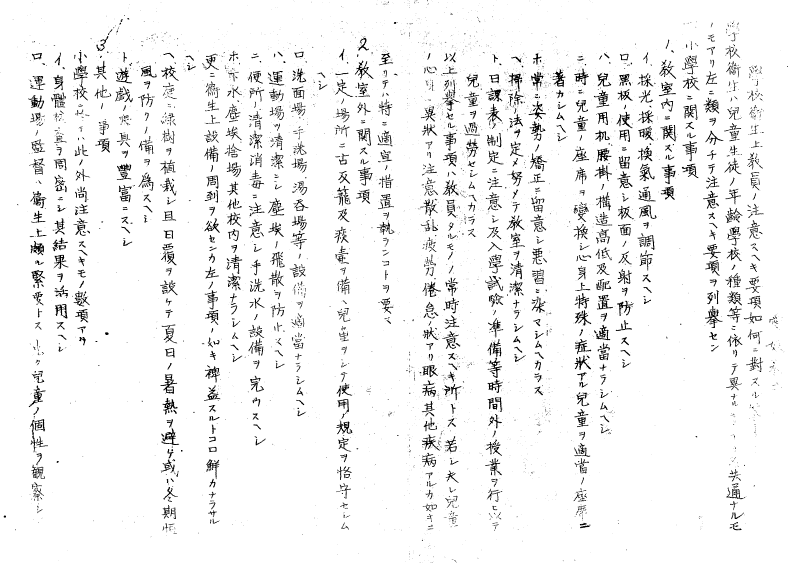 學校衛生上教員ノ注意スヘキ要項如何ニ對スル
學校衛生ハ兒童生徒ノ年齡學校ノ種類等ニ依リテ異ナ 共通ナルモ
ノモアリ左ニ類ヲ分チテ注意スヘキ要項ヲ列擧セン
小學校ニ関スル事項
1、教室内ニ関スル事項
イ、採光、採暖、換氣、通風ヲ調節スヘシ
ロ、黒板ノ使用ニ留意シ板面ノ反射ヲ防止スヘシ
ハ、兒童用机腰掛ノ構造高低及配置ヲ適當ナラシムヘシ
ニ、時ニ兒童ノ座席ヲ變換シ心身上特殊ノ症狀アル兒童ヲ適當ノ座席ニ
著カシムヘシ
ホ、常ニ姿勢ノ矯正ニ留意シ悪習ニ染マシムヘカラス
ヘ、掃除法ヲ定メ努メテ教室ヲ清潔ナラシムヘシ
ト、日課表ノ制定ニ注意シ及入學試驗ノ準備等時間外ノ授業ヲ行ヒ以テ
兒童ヲ過勞セシムヘカラス
以上列擧セル事項ハ教員タルモノノ常時注意スヘキ所トス若シ夫レ兒童
ノ心身ニ異狀アリ注意散乱疲勞倦怠ノ狀アリ眼病其他疾病アルカ如キニ
至リテハ特ニ適宜ノ措置ヲ執ランコトヲ要ス
2、教室外ニ関スル事項
イ、一定ノ場所ニ古反籠及痰壷ヲ備ヘ兒童ヲシテ使用ノ規定ヲ恪守セシム
ヘシ
ロ、洗面場、手洗場、湯呑場等ノ設備ヲ適當ナラシムヘシ
ハ、運動場ヲ清潔ニシ塵埃ノ飛散ヲ防止スヘシ
ニ、便所ノ清潔消毒ニ注意シ手洗水ノ設備ヲ完ウスヘシ
ホ、下水、塵埃捨場其他校内ヲ清潔ナラシムヘシ
更ニ衛生上設備ノ周到ヲ欲センカ左ノ事項ノ如キ裨益スルトコロ鮮カナラサル
ヘ、校庭ニ緑樹ヲ植栽シ且日覆ヲ設ケテ夏日ノ暑熱ヲ避ケ或ハ冬期恒
風ヲ防クノ備ヲ為スヘシ
ト、遊戯ノ具ヲ豐富ニスヘシ
3、其他ノ事項
小學校ニ於テ此ノ外尚注意スヘキモノ數項アリ
イ、身體檢査ヲ周密ニシ其結果ヲ活用スヘシ
ロ、運動場ノ監督ハ衛生上頗ル緊要トス 兒童ノ個性ヲ觀察シ